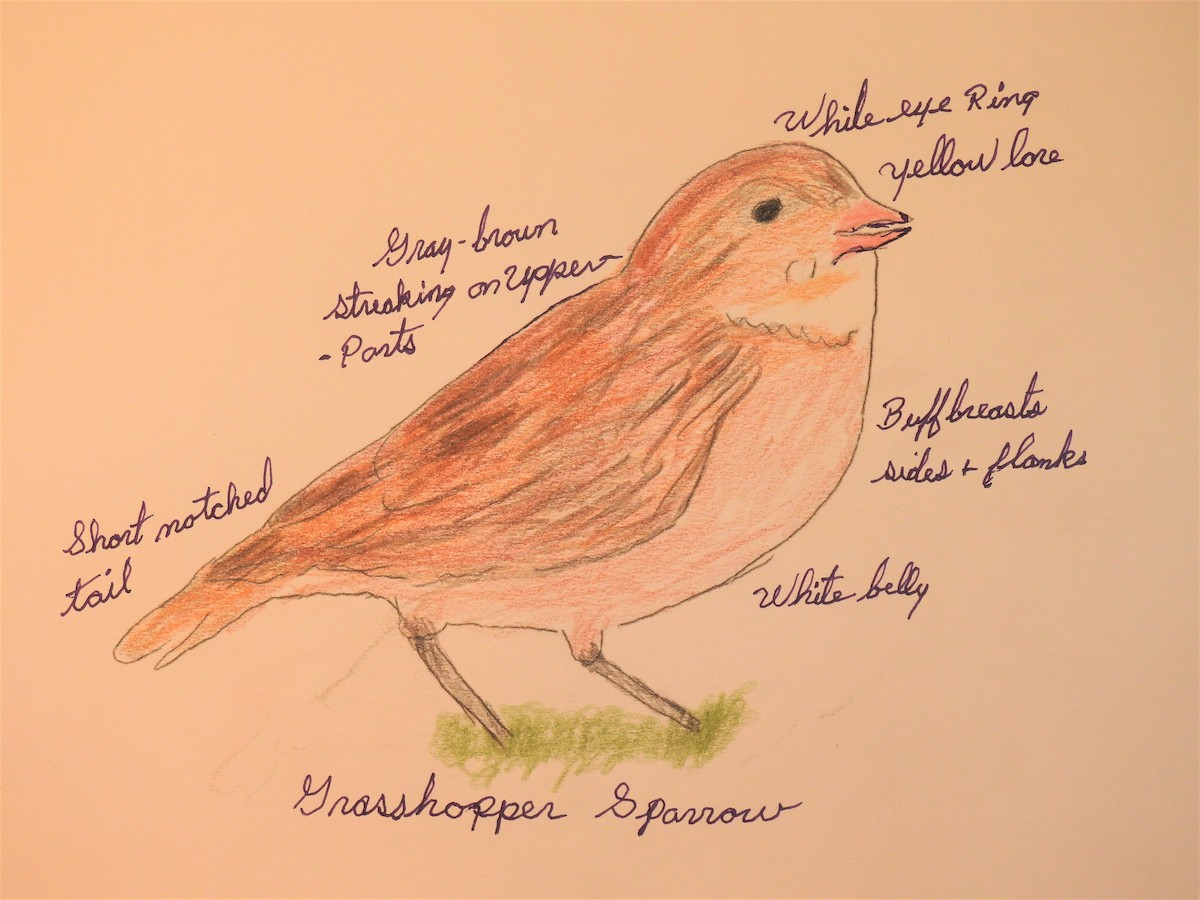 White eye Ring
yellow lore
Gray-brown
streaking on upper
- Parts
Buff breasts
sides + flanks
Short notched
tail
White belly
Grasshopper Sparrow